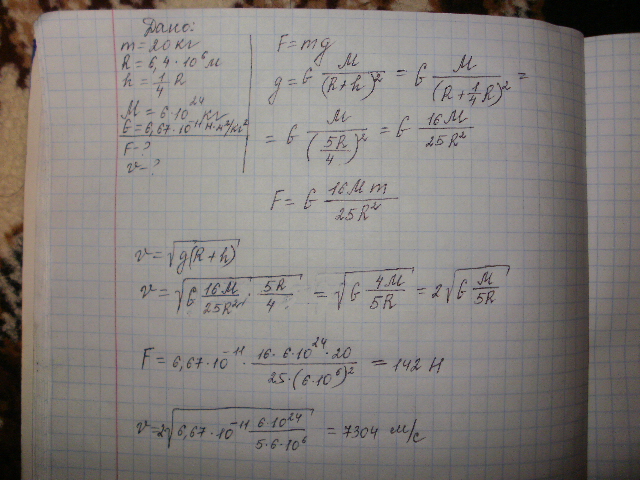 Дано:
m = 20 кг
R = 6,4 · 10⁶ м
h = 1/4 R
M = 6·10²⁴ кг
G = 6,67·10⁻¹¹ Н·м²/кг²
F - ?
v - ?
F = mg
g = G M/(R+h)² = G M/(R + 1/4 R)² =
= G M/(5R/4)² = G 16M/25R²
F = G 16Mm/25R²
v = √(g(R+h))
v = √(G 16M/25R² · 5R/4) = √(G 4M/5R) = 2√(G M/5R)
F = 6,67·10⁻¹¹ · 16·6·10²⁴·20/25·(6·10⁶)² = 142 Н
v = 2√(6,67·10⁻¹¹ 6·10²⁴/5·6·10⁶) = 7304 м/с